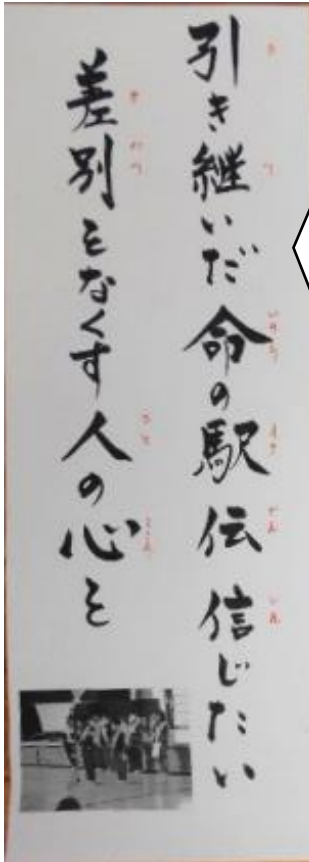 引き継いだ 命の駅伝 信じたい
差別をなくす人の心を